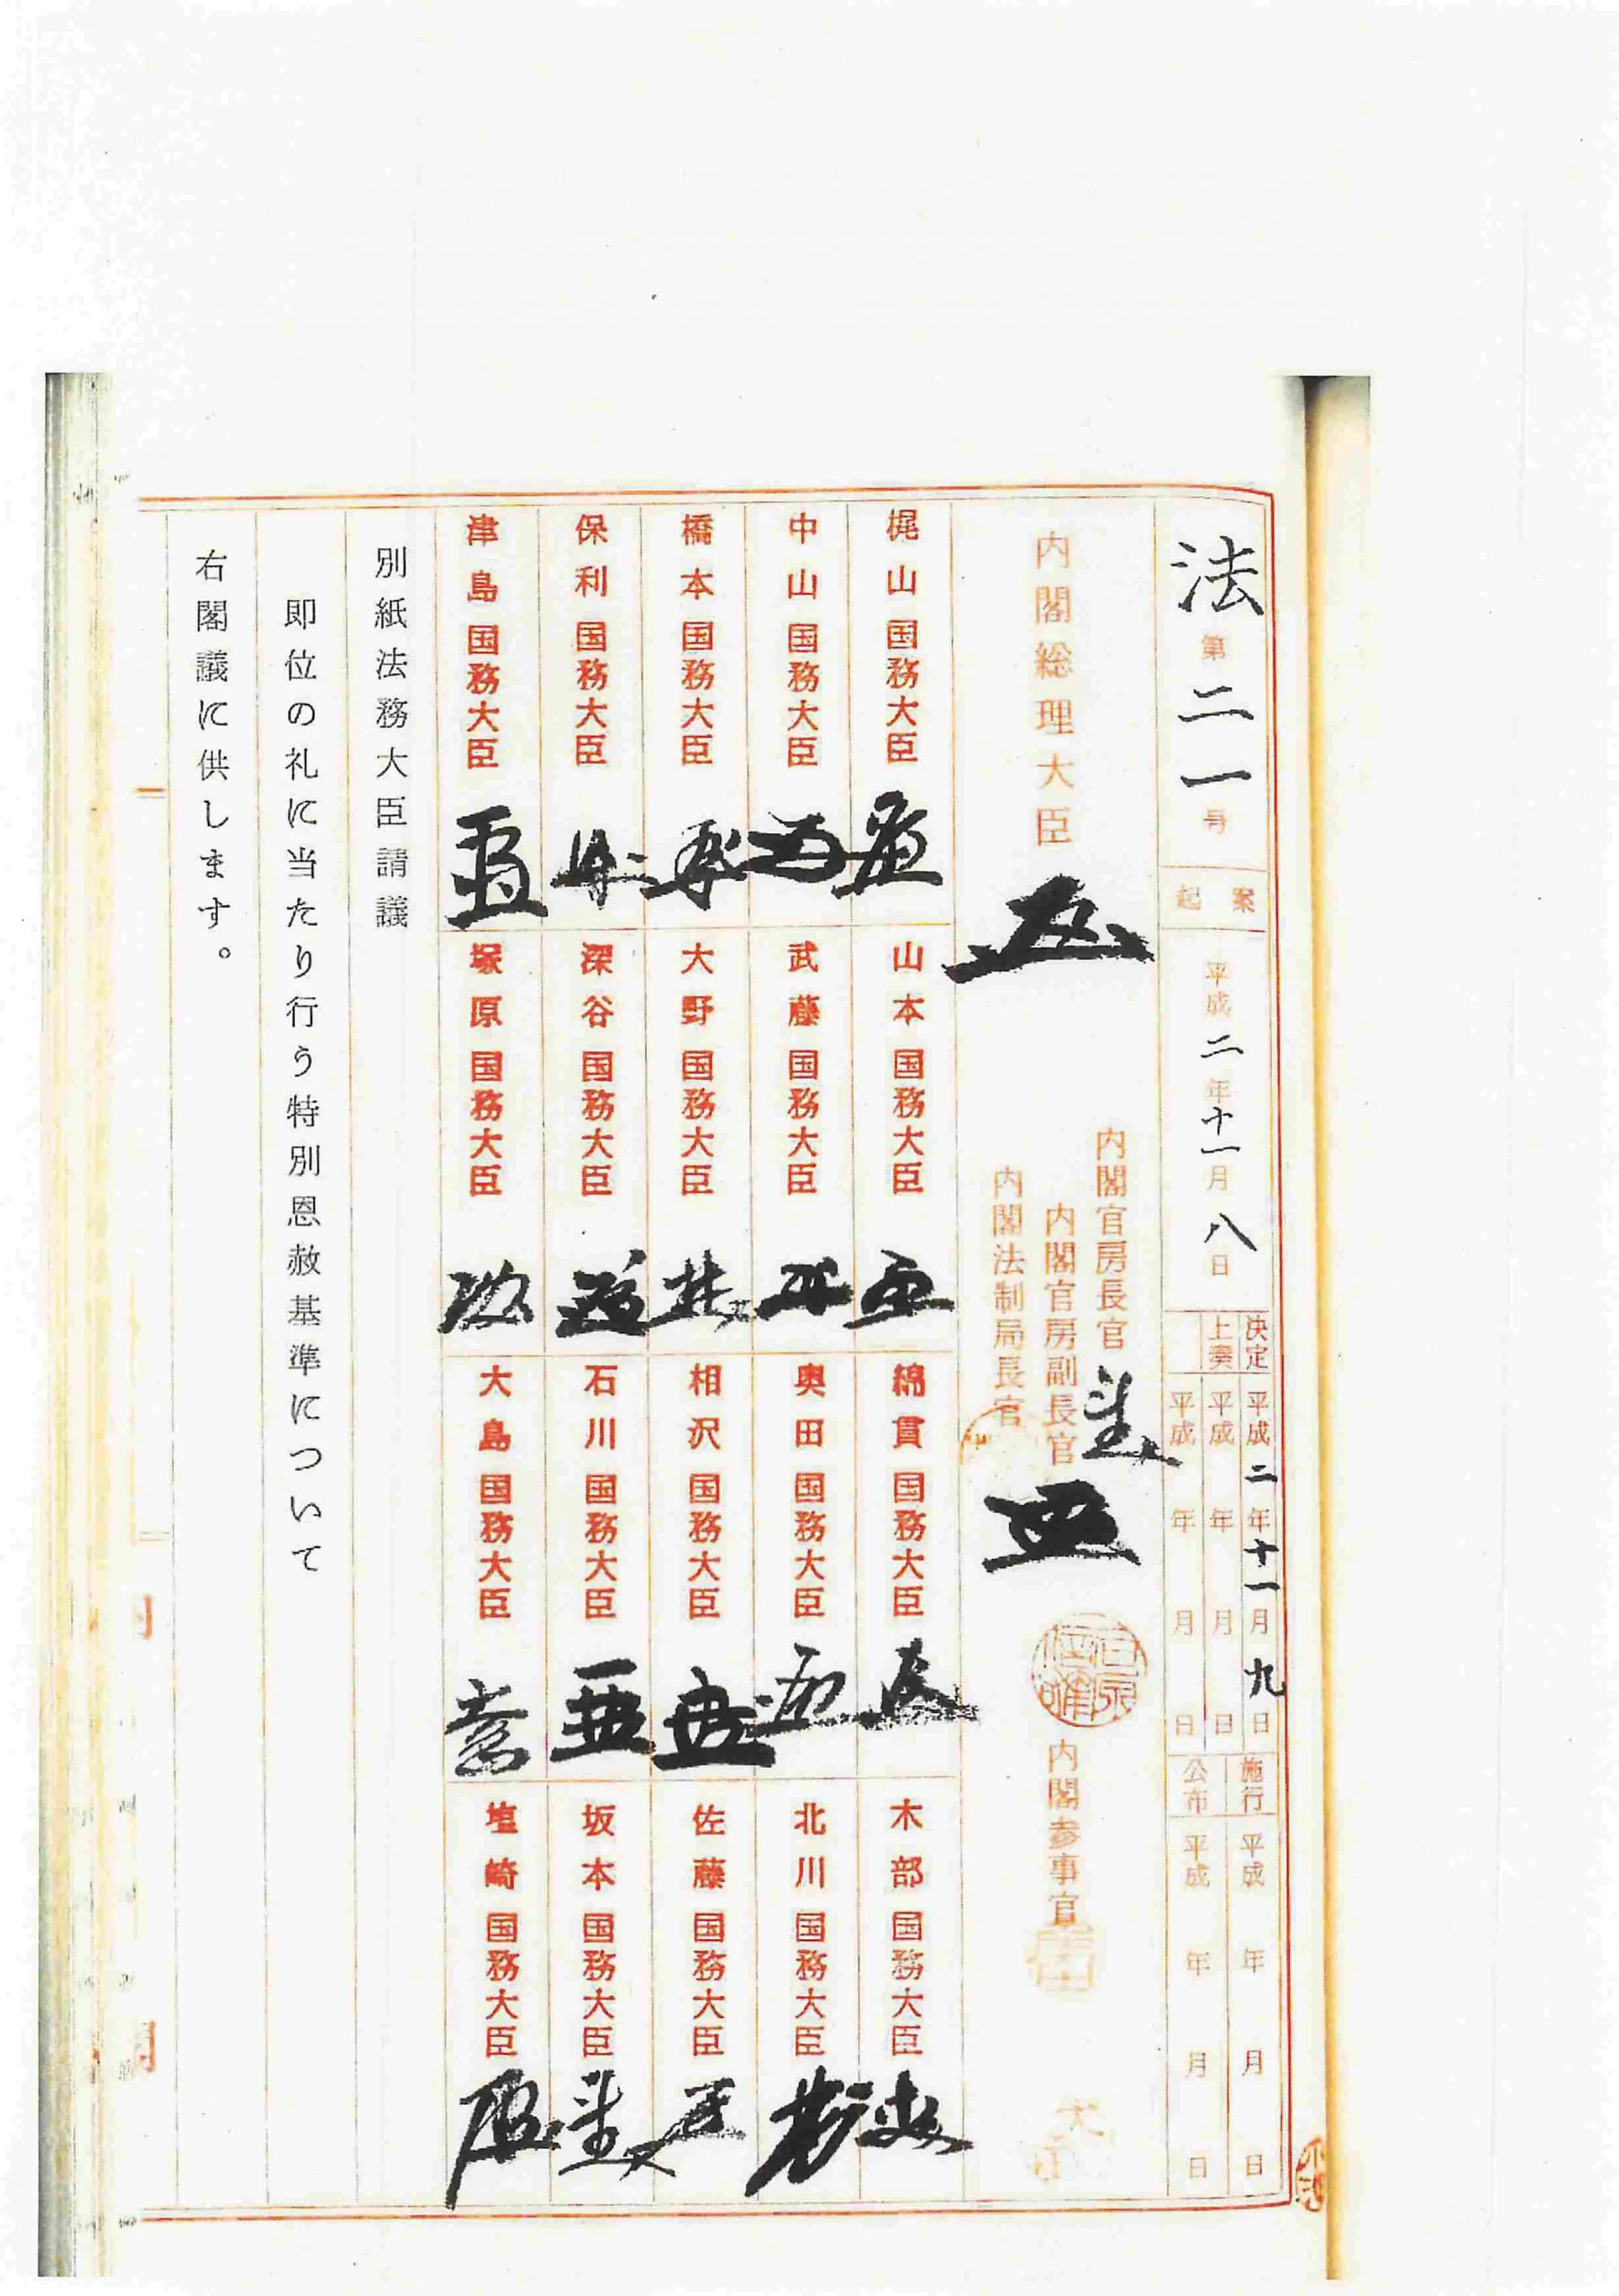 法第二一号
起案
平成二年十一月八日
決定 平成二年十一月九日
上奏 平成 年 月 日
平成 年 月 日
施行 平成 年 月 日
公布 平成 年 月 日
内閣総理大臣
内閣官房長官
内閣官房副長官
内閣法制局長官
内閣参事官
梶山国務大臣
山本国務大臣
綿貫国務大臣
木部国務大臣
中山国務大臣
武藤国務大臣
奥田国務大臣
北川国務大臣
橋本国務大臣
大野国務大臣
相沢国務大臣
佐藤国務大臣
保利国務大臣
深谷国務大臣
石川国務大臣
坂本国務大臣
津島国務大臣
塚原国務大臣
大島国務大臣
塩崎国務大臣
別紙法務大臣請議
即位の礼に当たり行う特別恩赦基準について
右閣議に供します。